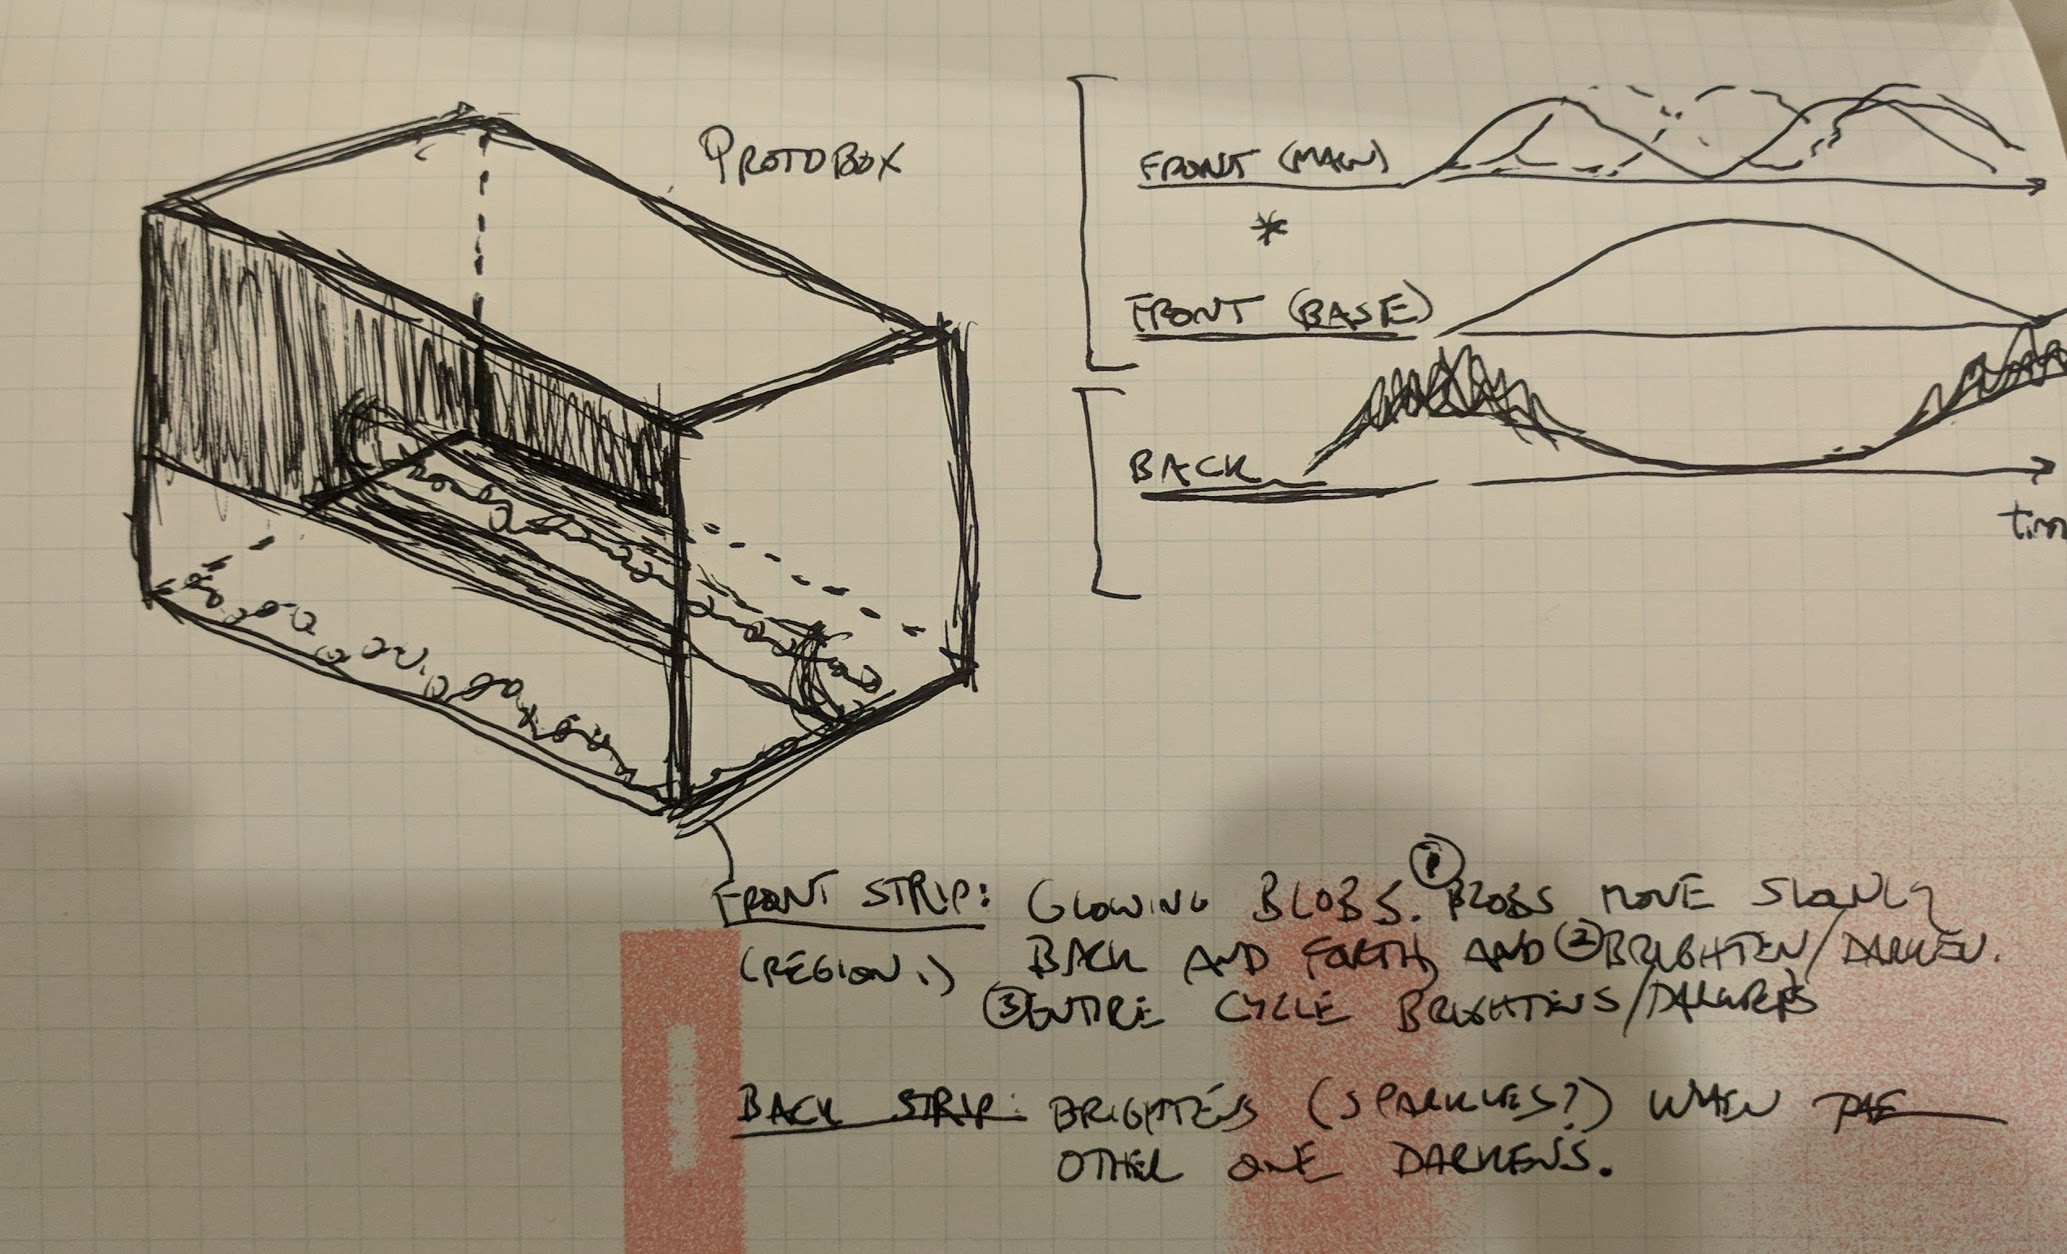 PROTOBOX
FRONT (MAIN)
*
FRONT (BASE)
BACK
tim
FRONT STRIP: GLOWING BLOBS. ① BLOBS MOVE SLOWLY
(REGION.) BACK AND FORTH, AND ② BRIGHTEN/DARKEN.
③ ENTIRE CYCLE BRIGHTENS/DARKENS
BACK STRIP: BRIGHTENS (SPARKLES?) WHEN THE
OTHER ONE DARKENS.